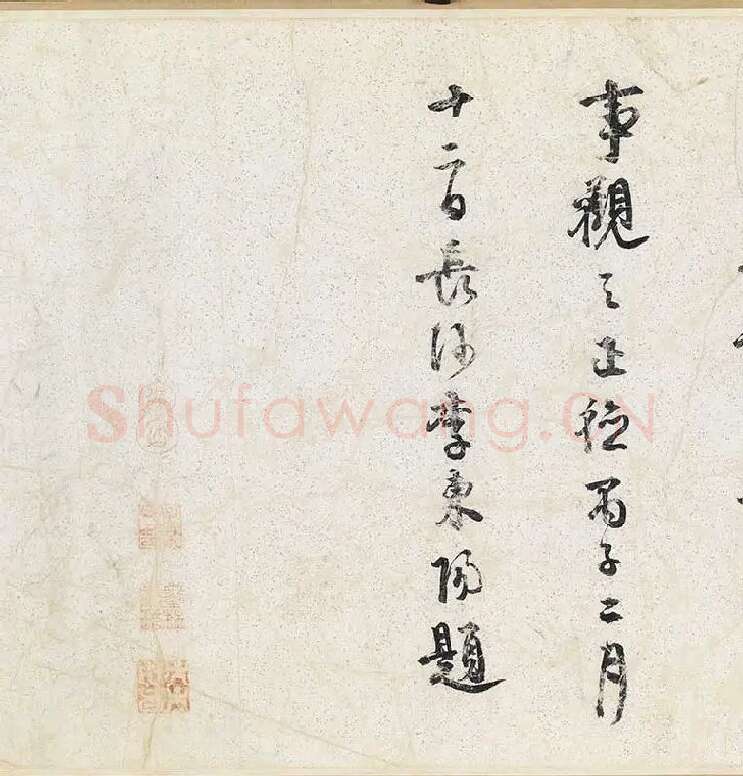 事觀之正德丙子二月
十二日長沙李東陽題
Shufawang.CN